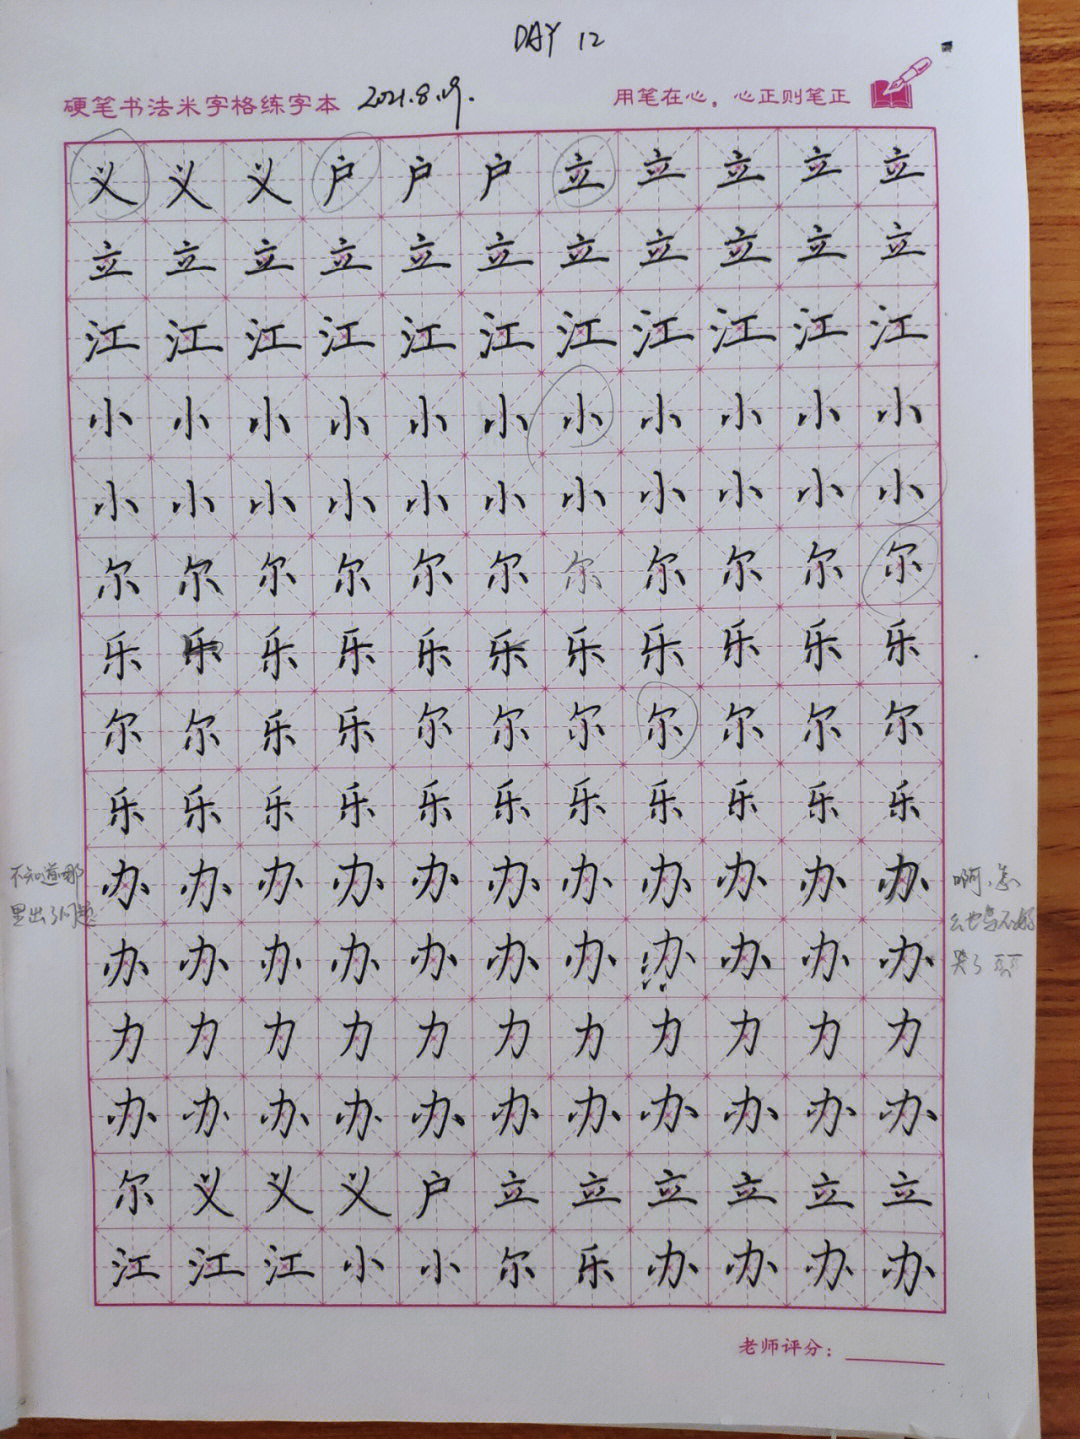 DAY 12
硬笔书法米字格练字本 2021.8.19. 用笔在心，心正则笔正
义义义户户户立立立立立
立立立立立立立立立立立
江江江江江江江江江江江
小小小小小小小小小小小
小小小小小小小小小小小
尔尔尔尔尔尔尔尔尔尔尔
乐乐乐乐乐乐乐乐乐乐乐
尔尔乐乐尔尔尔尔尔尔尔
乐乐乐乐乐乐乐乐乐乐乐
不知道哪
里出了问题
办办办办办办办办办办办
办办办办办办办办办办办
啊，怎
么也写不好
哭了
力力力力力力力力力力力
办办办办办办办办办办办
尔义义义户立立立立立立
江江江小小尔乐办办办办
老师评分：